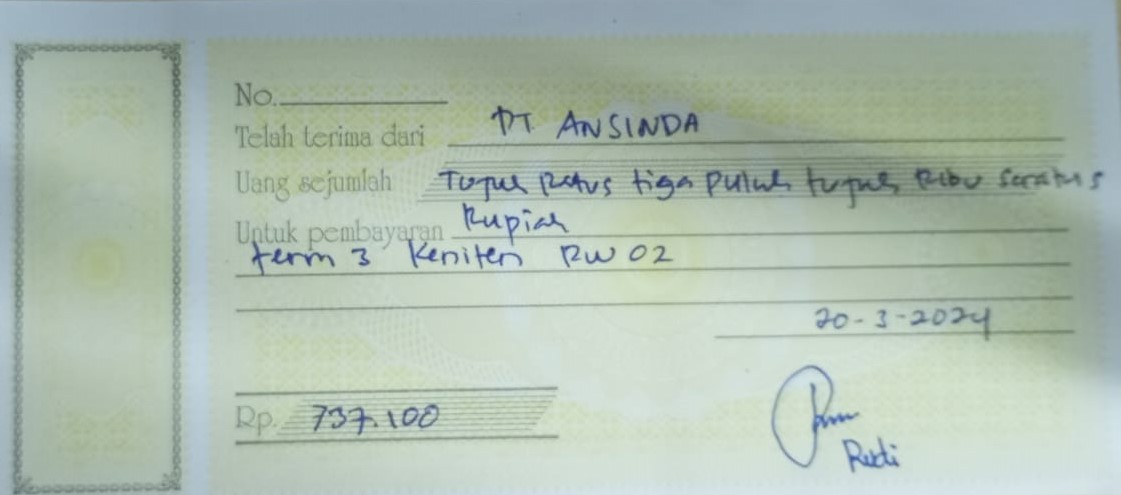 No.
Telah terima dari PT ANSINDA
Uang sejumlah Tujuh Ratus tiga puluh tujuh Ribu Seratus
Untuk pembayaran Rupiah
term 3 Keniten RW 02
20-3-2024
Rp. 737.100
Rudi